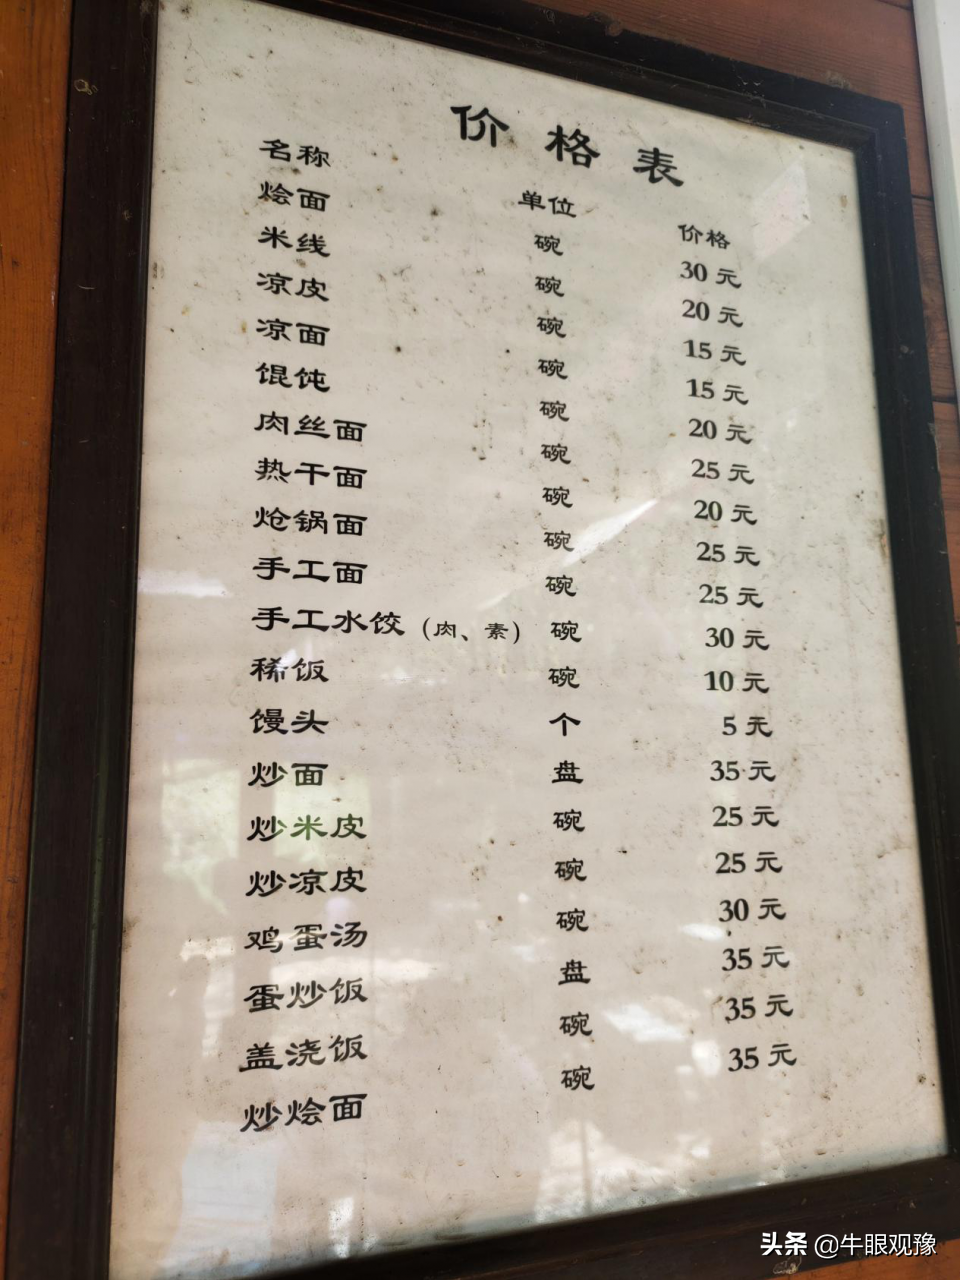 价格表
名称 单位 价格
烩面 碗 30元
米线 碗 20元
凉皮 碗 15元
凉面 碗 15元
馄饨 碗 20元
肉丝面 碗 25元
热干面 碗 20元
炝锅面 碗 25元
手工面 碗 25元
手工水饺（肉、素） 碗 30元
稀饭 碗 10元
馒头 个 5元
炒面 盘 35元
炒米皮 碗 25元
炒凉皮 碗 25元
鸡蛋汤 碗 30元
蛋炒饭 盘 35元
盖浇饭 碗 35元
炒烩面 碗 35元
头条 @牛眼观豫